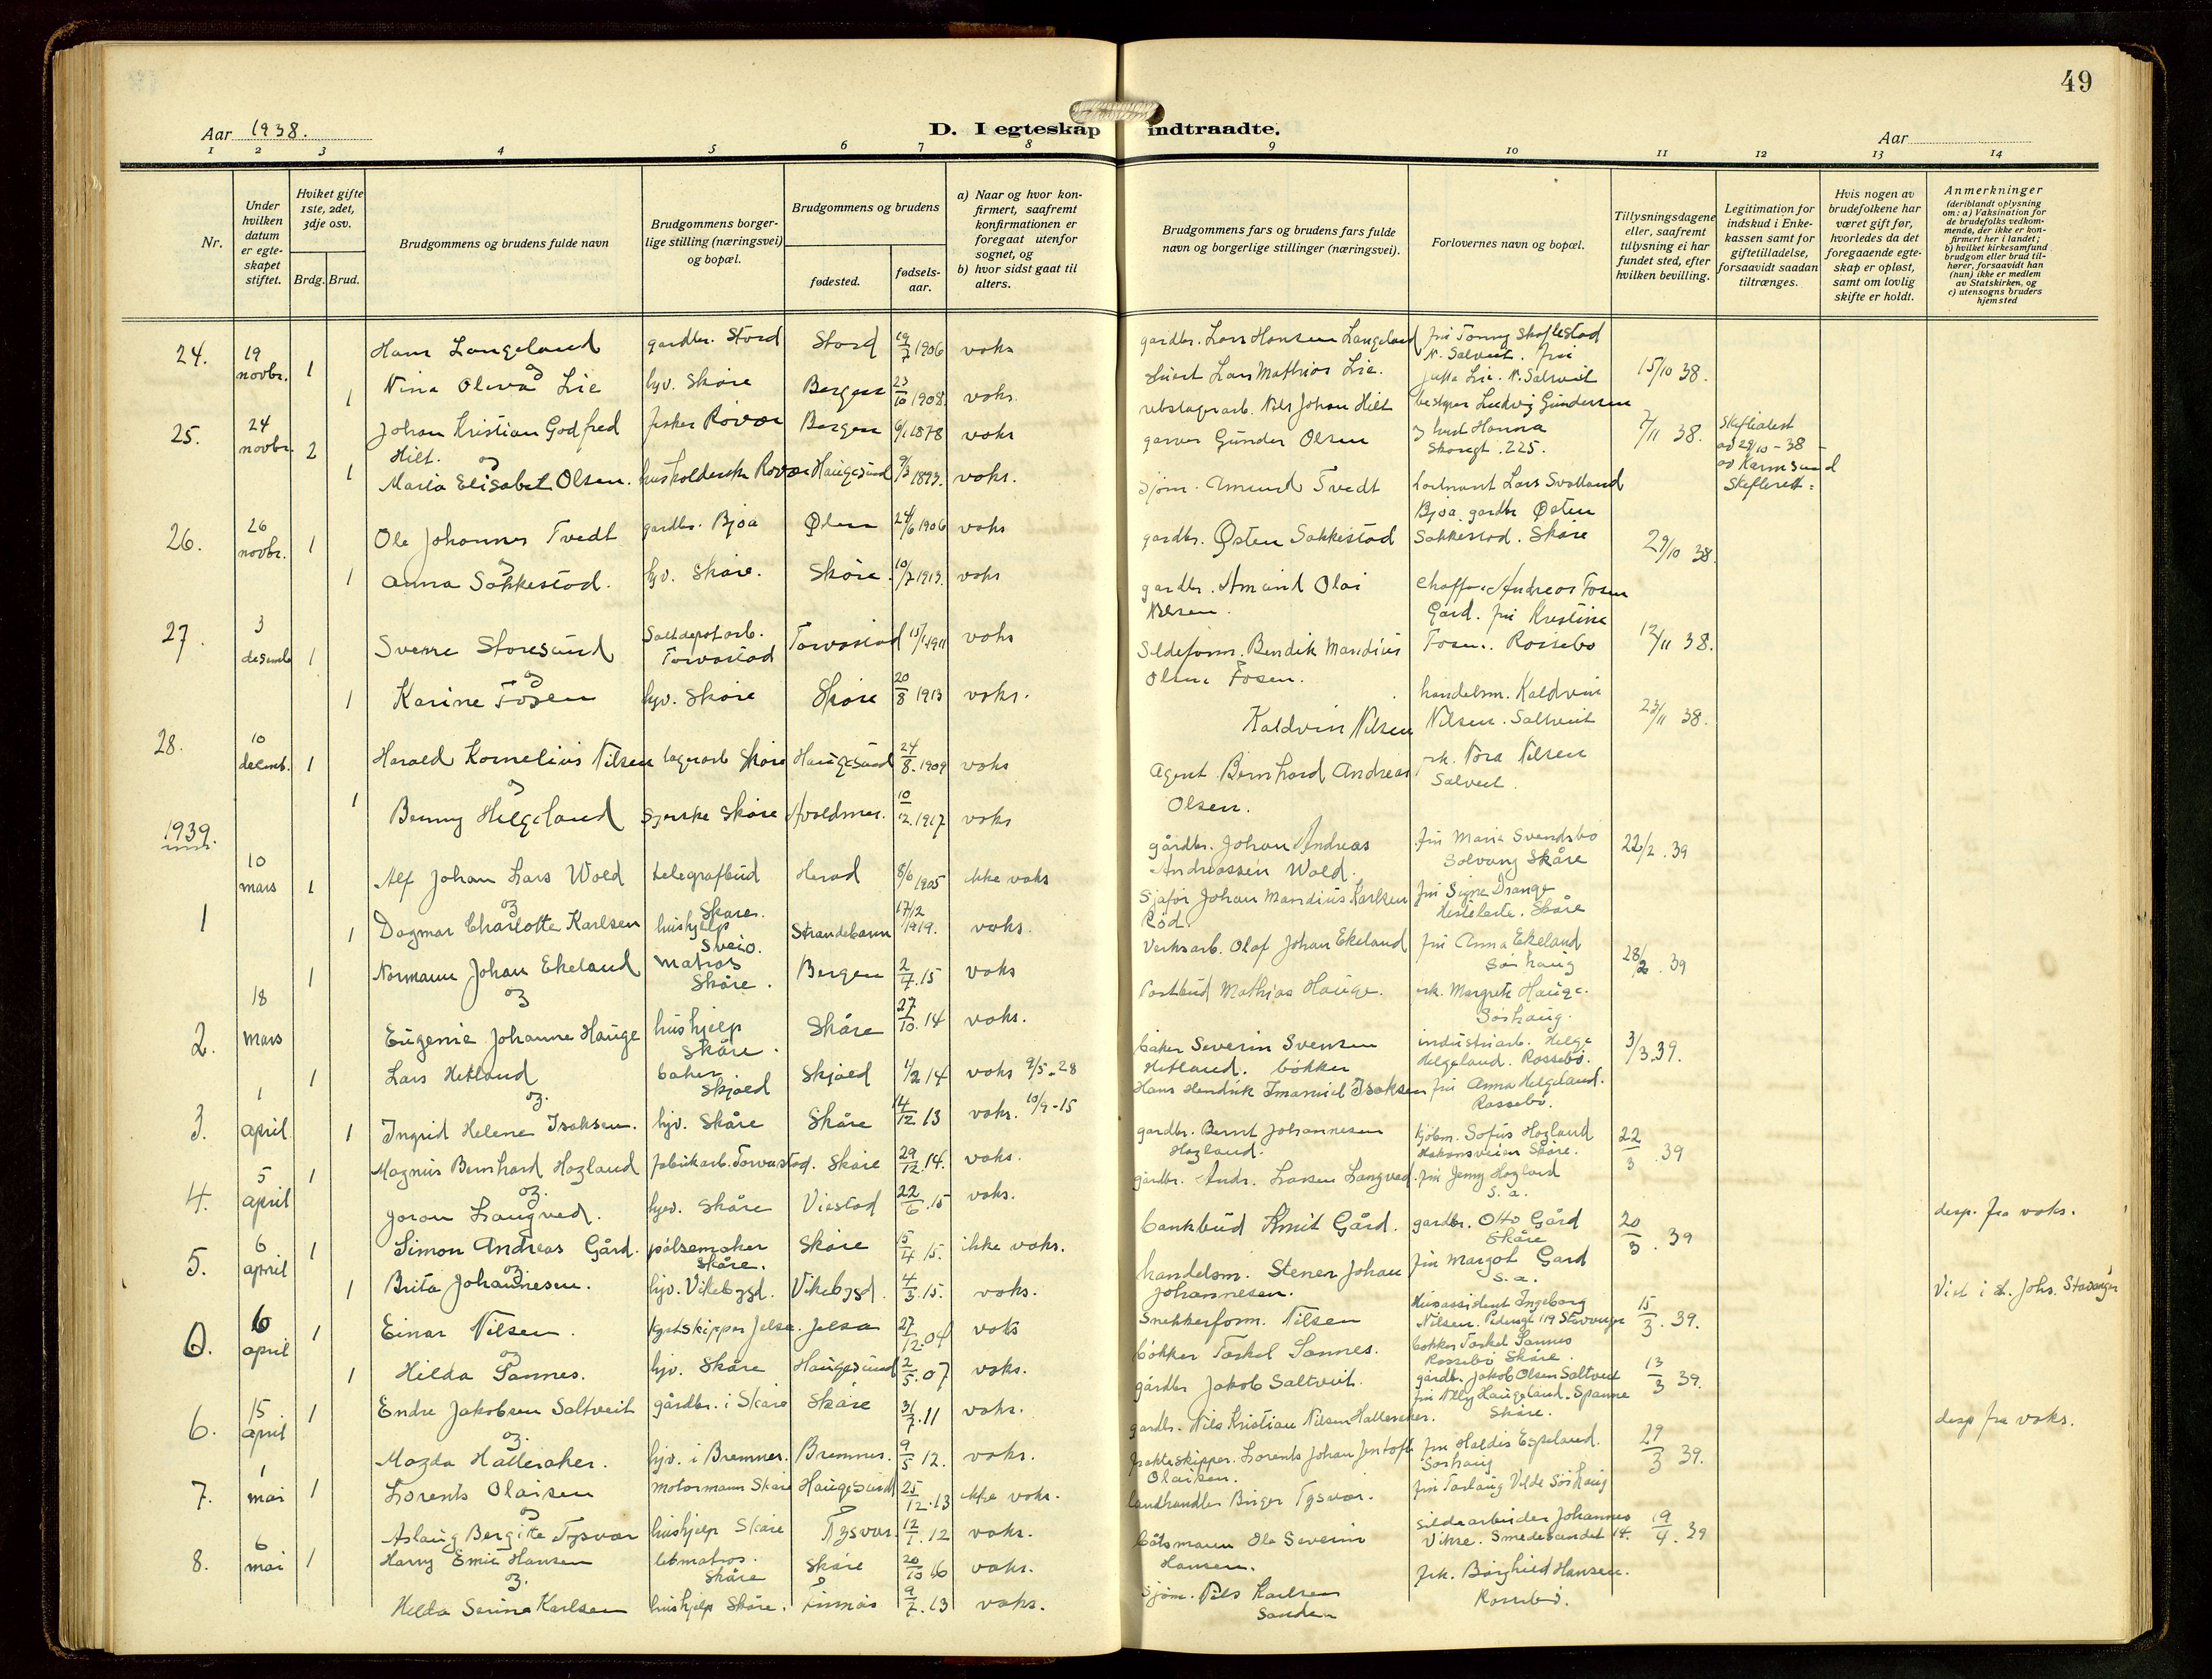 49
Aar 1938.
D. I egteskap indtraadte.
Aar
1 2 3 4 5 6 7 8 9 10 11 12 13 14
Nr.
Under hvilken datum er egteskapet stiftet.
Hviket gifte 1ste, 2det, 3dje osv.
Brdg. Brud.
Brudgommens og brudens fulde navn
Brudgommens borgerlige stilling (næringsvei) og bopæl.
Brudgommens og brudens
fødested.
fødselsaar.
a) Naar og hvor konfirmert, saafremt konfirmationen er foregaat utenfor sognet, og
b) hvor sidst gaat til alters.
Brudgommens fars og brudens fars fulde navn og borgerlige stillinger (næringsvei).
Forlovernes navn og bopæl.
Tillysningsdagene eller, saafremt tillysning ei har fundet sted, efter hvilken bevilling.
Legitimation for indskud i Enkekassen samt for giftetilladelse, forsaavidt saadan tiltrænges.
Hvis nogen av brudefolkene har været gift før, hvorledes da det foregaaende egteskap er opløst, samt om lovlig skifte er holdt.
Anmerkninger (deriblandt oplysning om: a) Vaksination for de brudefolks vedkommende, der ikke er konfirmert her i landet; b) hvilket kirkesamfund brudgom eller brud tilhører, forsaavidt han (hun) ikke er medlem av Statskirken, og c) utensogns bruders hjemsted
24. 19 novbr. 1 Hans Langeland gardbr. Stord Stord 19/7 1906 vaks gardbr. Lars Hansen Langeland fru Tonny Skoflestad N. Salveit. fru 15/10 38.
og
1 Nina Oliva Lie hjv. Skåre Bergen 23/10 1908. vaks. Lars Mathias Lie. Jutta Lie. N. Saltveit
25. 24 novbr. 2 Johan Kristian Godfred Hilt. fisker Røvær Bergen 6/1 1878 vaks rebslagerarb. Nils Johan Hilt bestyrer Ludvig Gundersen 7/11 38. Skifteatest av 29/10 - 38 - av Karmsund Skifterett.
og
1 Maria Elisabet Olsen. husholderske Røvær Haugesund 9/3 1893. vaks. garver Gunder Olsen & hust Hanna Skåregt. 225.
26. 26 novbr. 1 Ole Johannes Tvedt gardbr. Bjoa Ølen 24/6 1906 vaks sjøm. Amund Tvedt Lars Svolland Bjoa, gardbr Østen 29/10 38.
og
1 Anna Sakkestad. hjv. Skåre. Skåre. 10/7 1913. vaks gardbr. Østen Sakkestad Sakkestad. Skåre
27. 3 desemb. 1 Sverre Storesund Saltdepotarb. Torvastad Torvastad 15/1 1911 vaks gardbr. Amund Olai Nilsen. chaffør Andreas Fosen Gard. fru Kristine 12/11 38.
og
1 Karine Fosen hjv. Skåre Skåre 20/8 1913 vaks. Sildeform. Bendik Mandius Olsen Fosen. Fosen. Rossebø
28. 10 desemb. 1 Harald Kornelius Nilsen lagerarb Skåre Haugesund 24/8 1909 vaks Kaldvin Nilsen handelsm. Kaldvin Nilsen. Saltveit 23/11 38.
og
1 Benny Helgeland Syerske Skåre Avaldsnes. 10/12. 1917 vaks Agent Bernhard Andreas Olsen. frk. Nora Nilsen Salveit.
1939.
1 10 mars 1 Alf Johan Lars Wold telegrafbud Skåre. Herad 8/6 1905 ikke vaks gårdbr. Johan Andreas Andreassen Wold. fru Maria Svendsbø Solvang Skåre 22/2. 39
og
1 Dagmar Charlotte Karlsen hushjelp Sveio. Strandebarm 17/12 1919. vaks. Sjåfør Johan Mandius Karlsen Rød. fru Signe Drange Skåre
2. 18 mars 1 Normann Johan Ekeland matros Skåre. Bergen 2/7. 15 vaks Verksarb. Olaf Johan Ekeland fru Anna Ekeland Sørhaug 28/2. 39
og
Eugenie Johanne Hauge hushjelp Skåre. Skåre 27/10. 14 vaks. Postbud Mathias Hauge. frk. Margrete Hauge. Sørhaug.
3. 1 april 1 Lars Hetland baker Skjold Skjold 1/2 14 vaks 9/5-28 baker Severin Svensen Hetland. industriarb. Helge Helgeland. Rossebø. 3/3. 39.
og.
1 Ingrid Helene Isaksen. hjv. Skåre Skåre 14/12 13 vaks. 10/9-15 bøkker Hans Hendrik Imanuel Isaksen fru Anna Helgeland. Rossebø.
4. 5 april 1 Magnus Bernhard Hogland fabrikarb. Torvastad. Skåre 29/12. 14. vaks. gardbr. Bernt Johannesen Hogland. kjøbm. Sofus Hogland Hakonsveien Skåre. 22/3. 39
og.
Joron Langved. hjv. Skåre Vikstad 22/6. 15 vaks. gårdbr. Andr. Larsen Langved. fru Jenny Hogland s. a.
5. 6 april 1 Simon Andreas Gård. pølsemaker Skåre. Skåre 15/4 15. ikke vaks. bankbud Knut Gård. gardbr. Otto Gård Skåre 20/3. 39 desp. fra vaks.
og
1 Brita Johannesen. hjv. Vikebygd. Vikebygd. 4/3. 15. vaks. handelsm. Stener Johan Johannesen. fru Margot Gard s. a.
6. 6 april 1 Einar Nilsen. Jelsa. Jelsa 27/12. 04 vaks Snekkerform. Nilsen Ingeborg Nilsen. Pedersgt 119 Stavanger 15/3. 39. Viet i st. Johs. Stavanger
og
1 Hilda Sannes. hjv. Skåre Haugesund 2/5. 07 vaks. bøkker Torkel Sannes. bøkker Torkel Sannes Rossebø Skåre.
6. 15. april 1 Endre Jakobsen Saltveit gårdbr. i Skåre Skåre 31/7. 11 vaks. gårdbr Jakob Saltveit. gårdb. Jakob Olsen Saltveit 13/3 39.
og.
Magda Halleraker. hjv. i Bremnes. Bremnes. 9/5 12. vaks. gardbr. Nils Kristian Nilsen Halleraker. fru Nelly Haugeland. Spanne Skåre. desp fra vaks.
7. 1 mai 1 Lorents Olaisen motormann Skåre Haugesund 25/12. 13 ikke vaks. frakteskipper. Lorents Johan Jentoft Olaisen. fru Haldis Espeland. Sørhaug 29/3 39.
og
Aslaug Bergitte Tysvær hushjelp Skåre Tysvær. 12/1. 12 vaks. landhandler Birger Tysvær. fru Torlaug Velde Sørhaug
8. 6 mai 1 Harry Emil Hansen letmatros. Skåre Skåre 20/10 16 vaks. båtsmann Ole Severin Hansen. sildearbeider Johannes Vikse. Smedesundet 14. 19/4. 39
og.
Hilda Serine Karlsen hushjelp Skåre. Finnås 9/7. 13 vaks. sjøm. Nils Karlsen frk. Borghild Hansen. Rossebø.